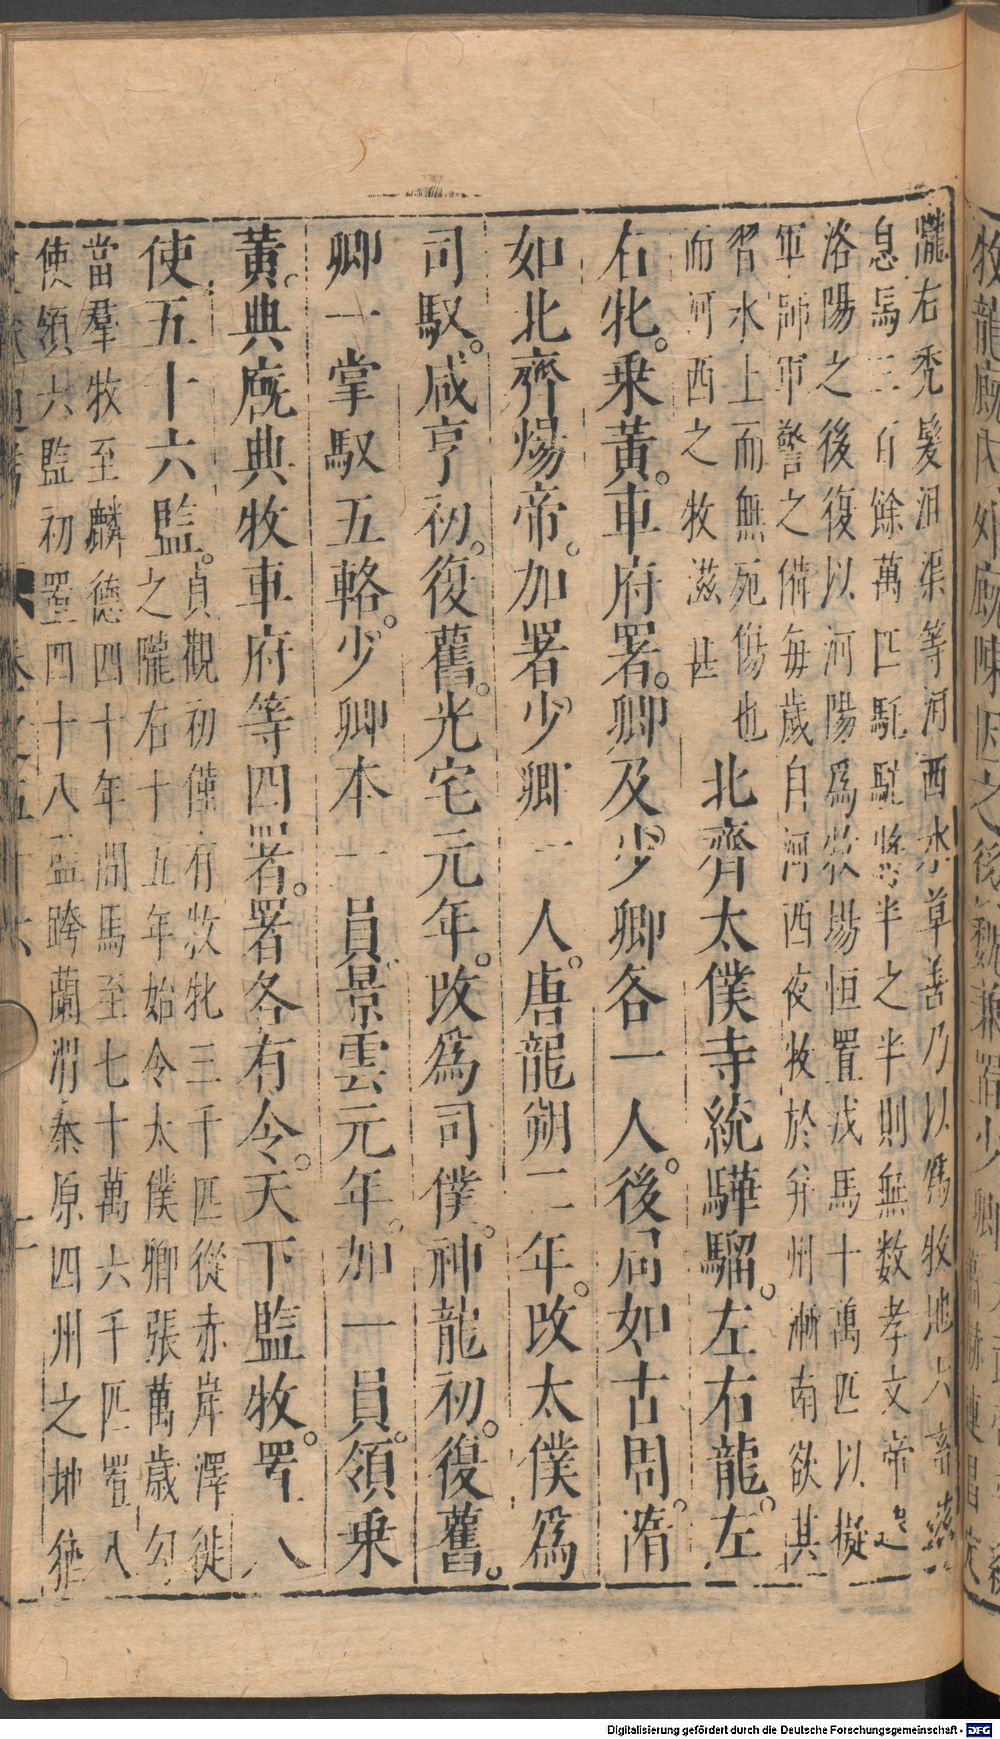 隴右禿髮沮渠等河西水草善乃以爲牧地六畜滋
息馬三百餘萬匹駝駝將半之半則無數孝文帝遷
洛陽之後復以河陽爲牧場恒置戎馬十萬匹以擬
軍師軍警之備每歲自河西夜牧於并州漸南欲其
習水土而無死傷也
而河西之牧滋甚
北齊太僕寺統驊騮。左右龍。左
右牝。乗黃。車府署。卿及少卿各一人。後周如古周。隋
如北齊煬帝。加署少卿一人。唐龍朔二年。改太僕爲
司馭。咸亨初。復舊。光宅元年。改爲司僕。神龍初。復舊。
卿一掌馭五輅。少卿本一員。景雲元年。加一員。領乗
黃。典廐典牧車府等四署。署各有令。天下監牧。署八
使五十六監。
貞觀初僅有牧牝三千匹從赤岸澤徙
之隴右十五年始令太僕卿張萬歲勾
當羣牧至麟德四十年間馬至七十萬六千匹置八
使領六監初置四十八監跨蘭渭秦原四州之地
牧龍廐內外廐
之後魏兼置少卿
Digitalisierung gefördert durch die Deutsche Forschungsgemeinschaft - DFG